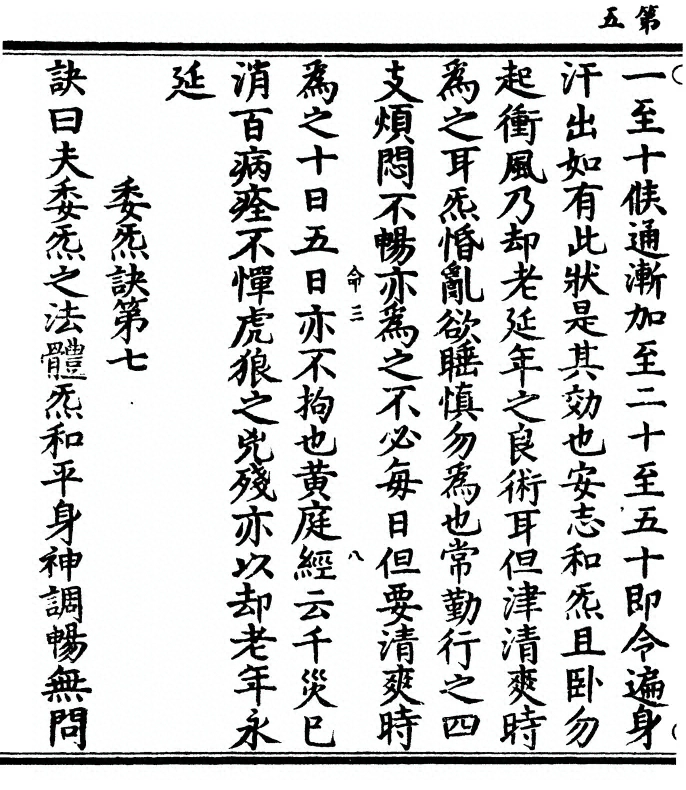 第五
一至十候通漸加至二十至五十即令遍身
汗出如有此狀是其効也安志和炁且卧勿
起衝風乃却老延年之良術耳但津清爽時
為之耳炁惛亂欲睡慎勿為也常勤行之四
支煩悶不暢亦為之不必每日但要清爽時
命三
八
為之十日五日亦不拘也黄庭經云千災巳
消百病痊不憚虎狼之兇殘亦以却老年永
延
委炁訣第七
訣曰夫委炁之法體炁和平身神調暢無問